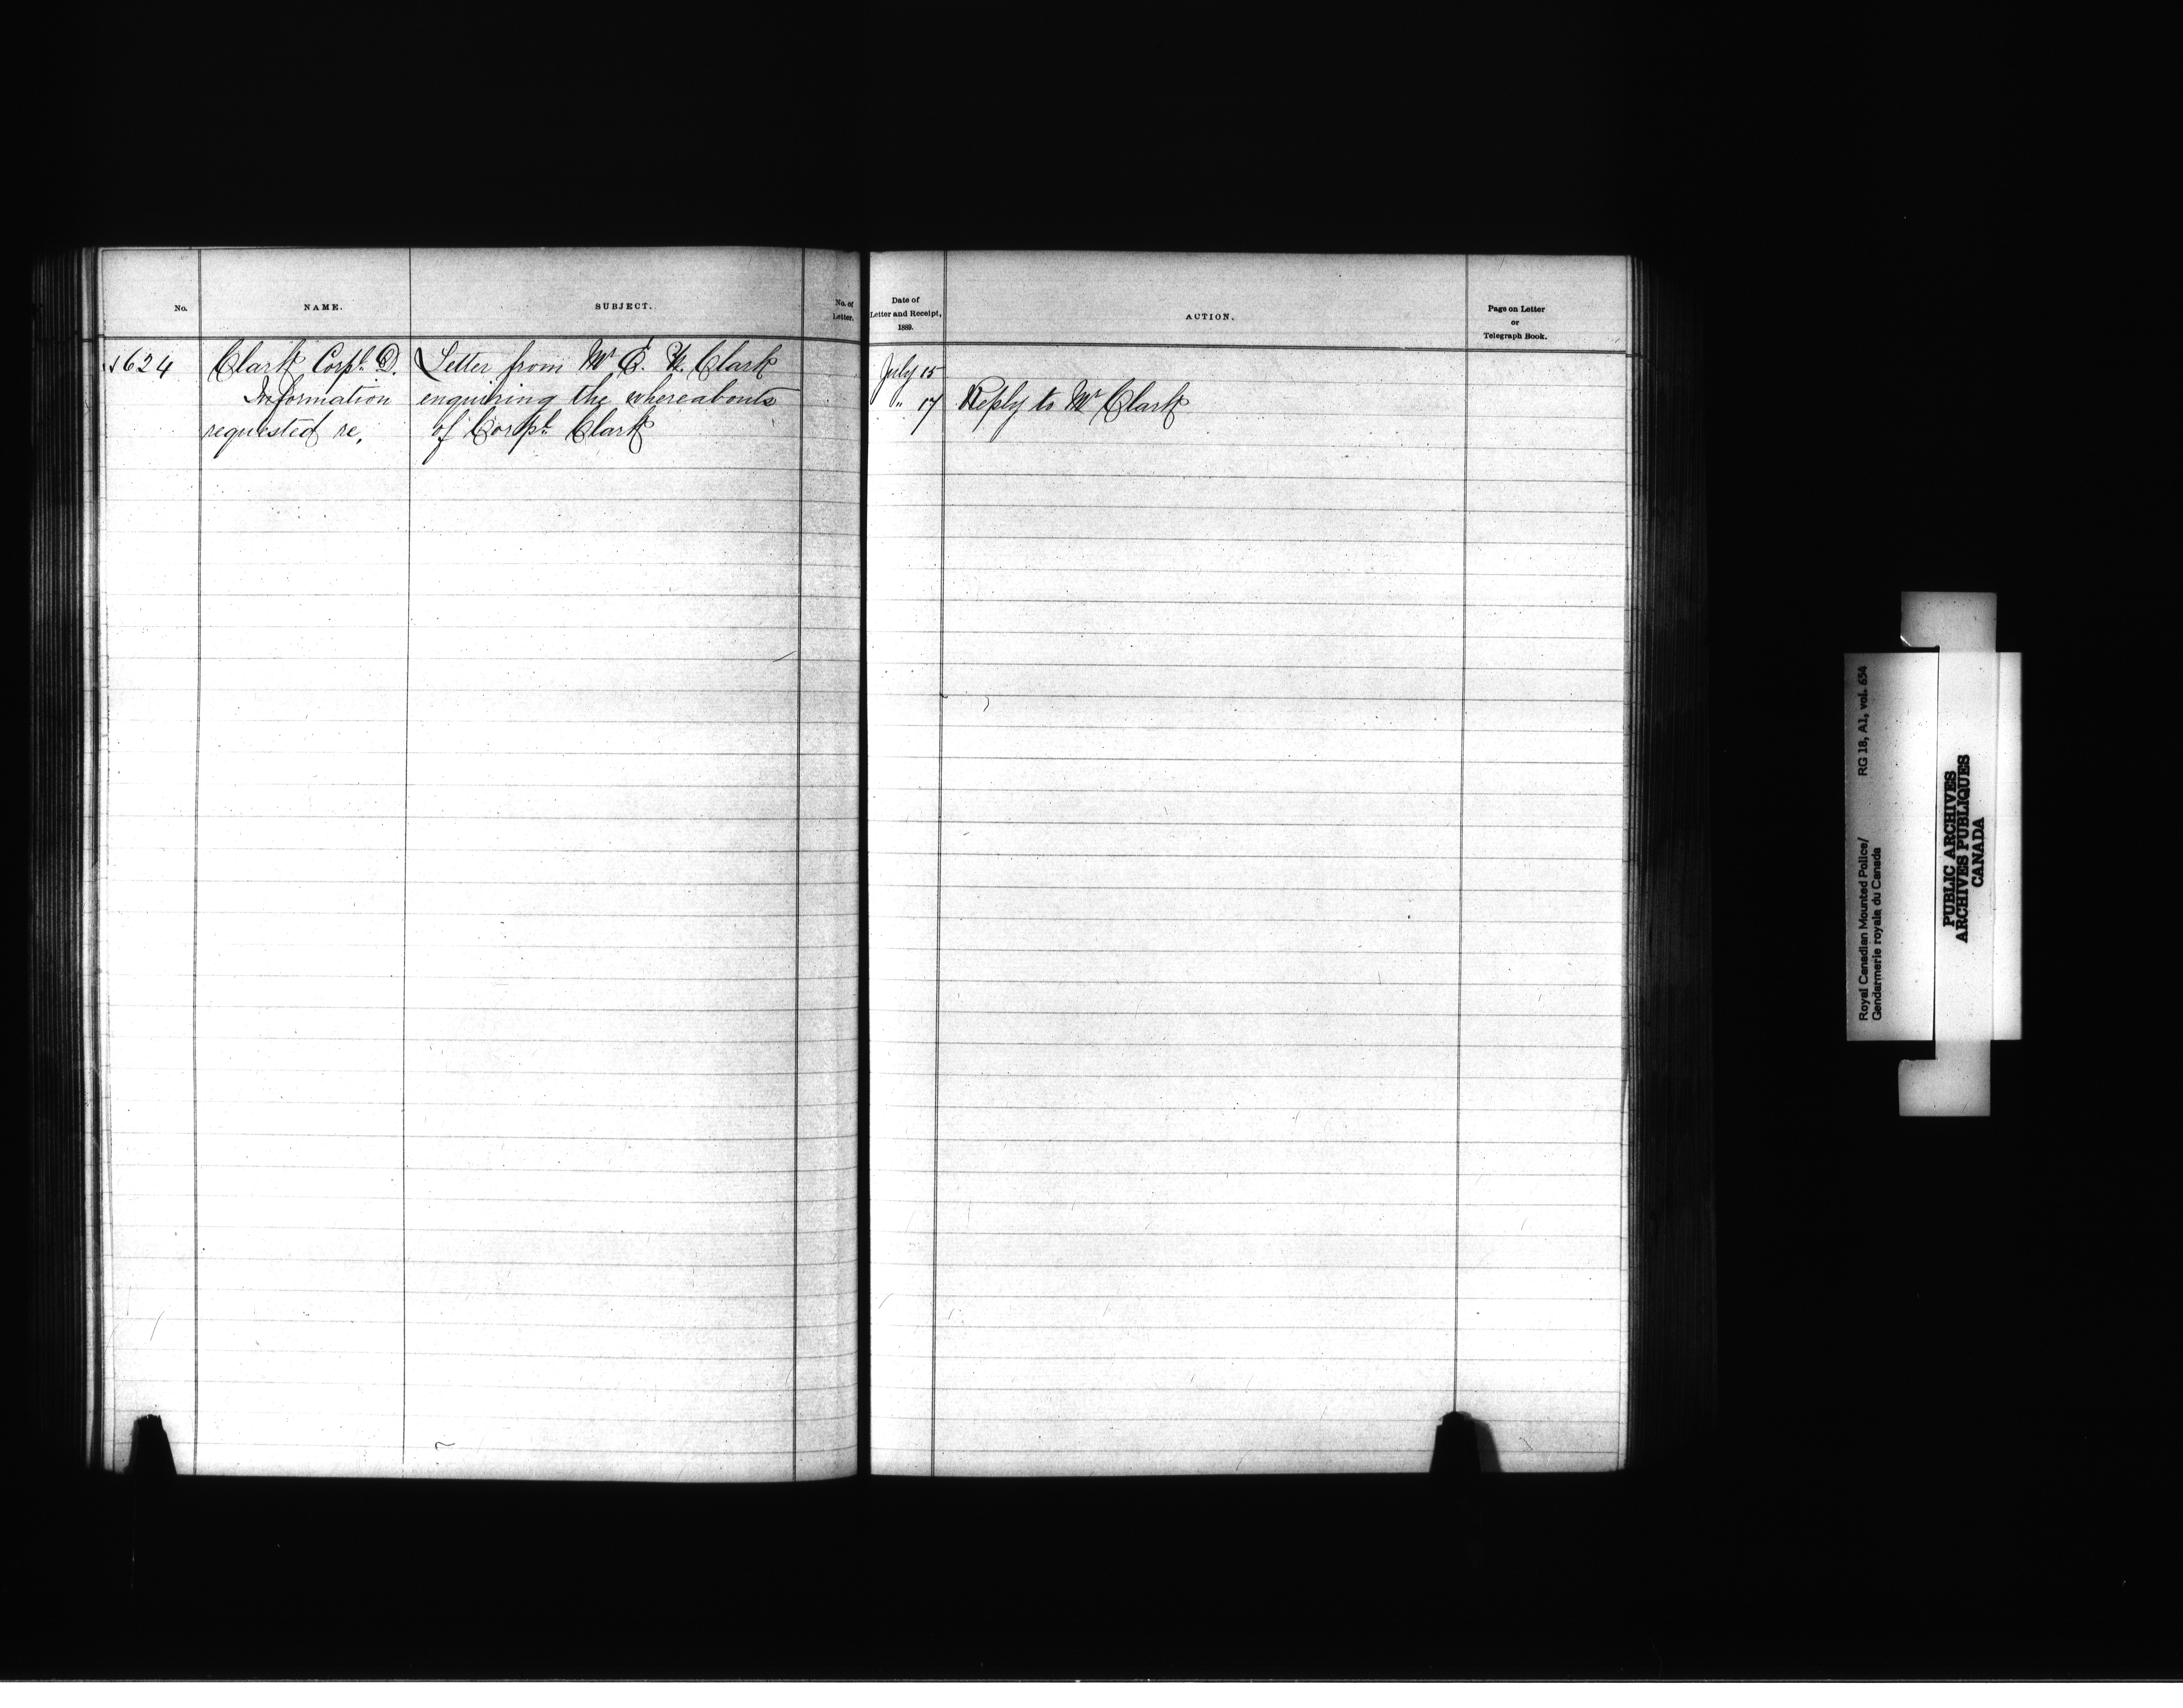 No.
NAME.
SUBJECT.
No. of
Letter.
Date of
Letter and Receipt,
1889.
ACTION.
Page on Letter
or
Telegraph Book.
624
Clark Corpl. D.
Information
requested re,
Letter from Mr E. Clark
enquiring the whereabouts
of Corpl. Clark
July 15
" 17
Reply to Mr Clark
Royal Canadian Mounted Police/
Gendarmerie royale du Canada
RG 18, A1, vol. 654
PUBLIC ARCHIVES
ARCHIVES PUBLIQUES
CANADA